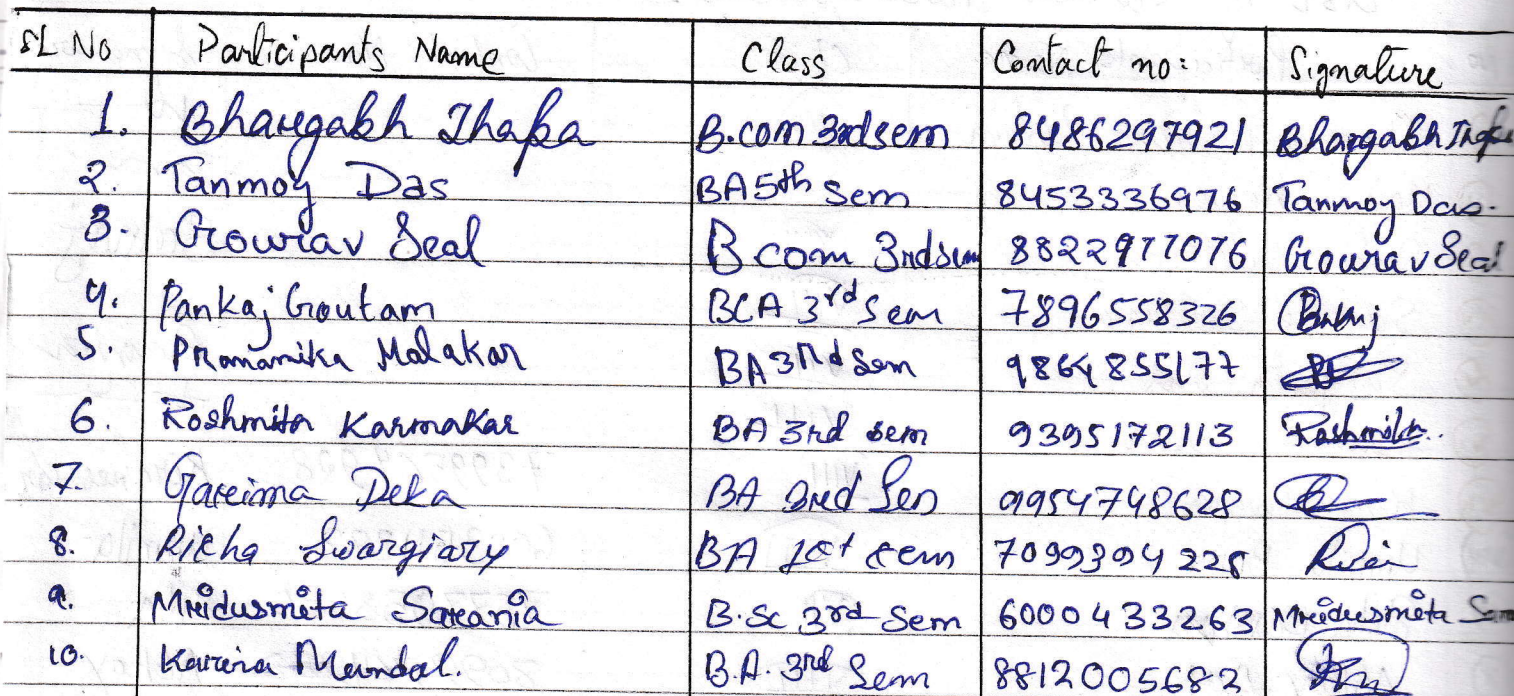 SL No Participants Name Class Contact no: Signature
1. Bhargabh Thapa B.com 3rdsem 8486297921 Bhargabh Thapa
2. Tanmoy Das BA 5th Sem 8453336976 Tanmoy Das.
3. Gourav Seal B com 3rdsem 8822977076 Gourav Seal
4. Pankaj Goutam BCA 3rd Sem 7896558326
5. Pramanika Malakar BA 3rd Sem 9864855177
6. Roshmita Karmakar BA 3rd sem 9395172113 Rashmita
7. Gareima Deka BA 3rd Sem 9954748628
8. Richa Swargiary BA 1st sem 7099394228
9. Mridusmita Sarania B.Sc 3rd Sem 6000433263 Mridusmita
10. Karina Mandal. B.A. 3rd Sem 8812005682